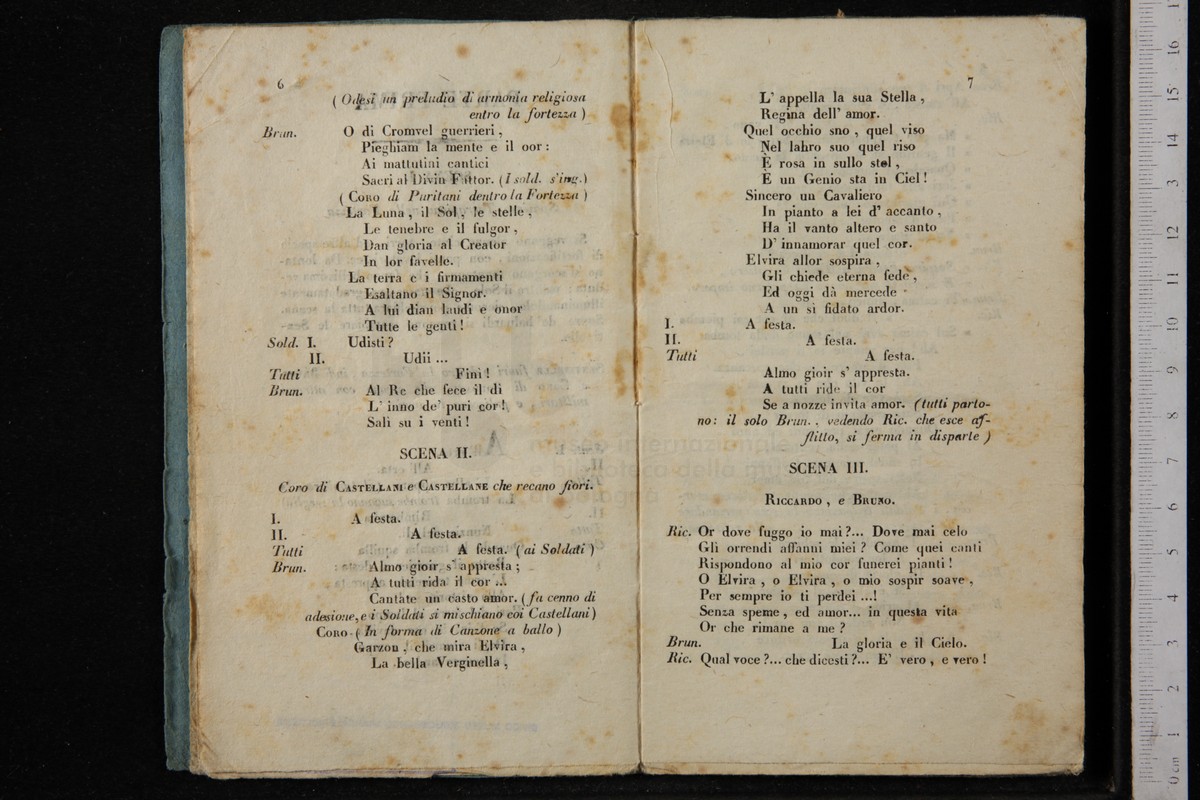 6
( Odesi un preludio di armonia religiosa
entro la fortezza )
Brun. O di Cromvel guerrieri,
Pieghiam la mente e il oor :
Ai mattutini cantici
Sacri al Divin Fattor. (I sold. s'ing.)
( CORO di Puritani dentro la Fortezza )
La Luna, il Sol, le stelle,
Le tenebre e il fulgor,
Dan gloria al Creator
In lor favelle.
La terra e i firmamenti
Esaltano il Signor.
A lui dian laudi e onor
Tutte le genti!
Sold. I. Udisti?
II. Udii ...
Tutti Finì!
Brun. Al Re che fece il dì
L' inno de' puri cor!
Salì su i venti!
SCENA II.
Coro di CASTELLANI e CASTELLANE che recano fiori.
I. A festa.
II. A festa.
Tutti A festa. (ai Soldati )
Brun. Almo gioir s' appresta ;
A tutti rida il cor ...
Cantate un casto amor. (fa cenno di
adesione, e i Soldati si mischiano coi Castellani)
CORO ( In forma di Canzone a ballo )
Garzon, che mira Elvira,
La bella Verginella,
7
L' appella la sua Stella,
Regina dell' amor.
Quel occhio sno, quel viso
Nel labro suo quel riso
È rosa in sullo stel,
È un Genio sta in Ciel!
Sincero un Cavaliero
In pianto a lei d' accanto,
Ha il vanto altero e santo
D' innamorar quel cor.
Elvira allor sospira,
Gli chiede eterna fede,
Ed oggi dà mercede
A un sì fidato ardor.
I. A festa.
II. A festa.
Tutti A festa.
Almo gioir s' appresta.
A tutti ride il cor
Se a nozze invita amor. (tutti parto-
no: il solo Brun., vedendo Ric. che esce af-
flitto, si ferma in disparte )
SCENA III.
RICCARDO, e BRUNO.
Ric. Or dove fuggo io mai?... Dove mai celo
Gli orrendi affanni miei? Come quei canti
Rispondono al mio cor funerei pianti!
O Elvira, o Elvira, o mio sospir soave,
Per sempre io ti perdei ...!
Senza speme, ed amor... in questa vita
Or che rimane a me?
Brun. La gloria e il Cielo.
Ric. Qual voce?... che dicesti?... E' vero, e vero!
museo internazionale
e biblioteca della musica
0 cm 1 2 3 4 5 6 7 8 9 10 11 12 13 14 15 16